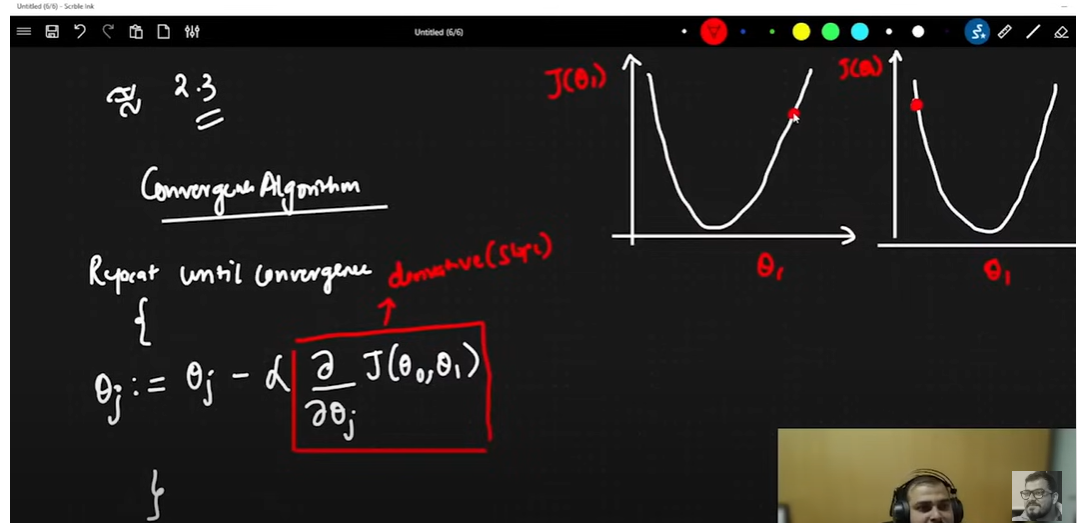 Untitled (6/6) - Scrble Ink
Untitled (6/6)
≈ 2.3
Convergence Algorithm
Repeat until convergence
{
derivative (slope)
θj := θj - α ∂/∂θj J(θ0, θ1)
}
J(θ1)
θ1
J(θ1)
θ1